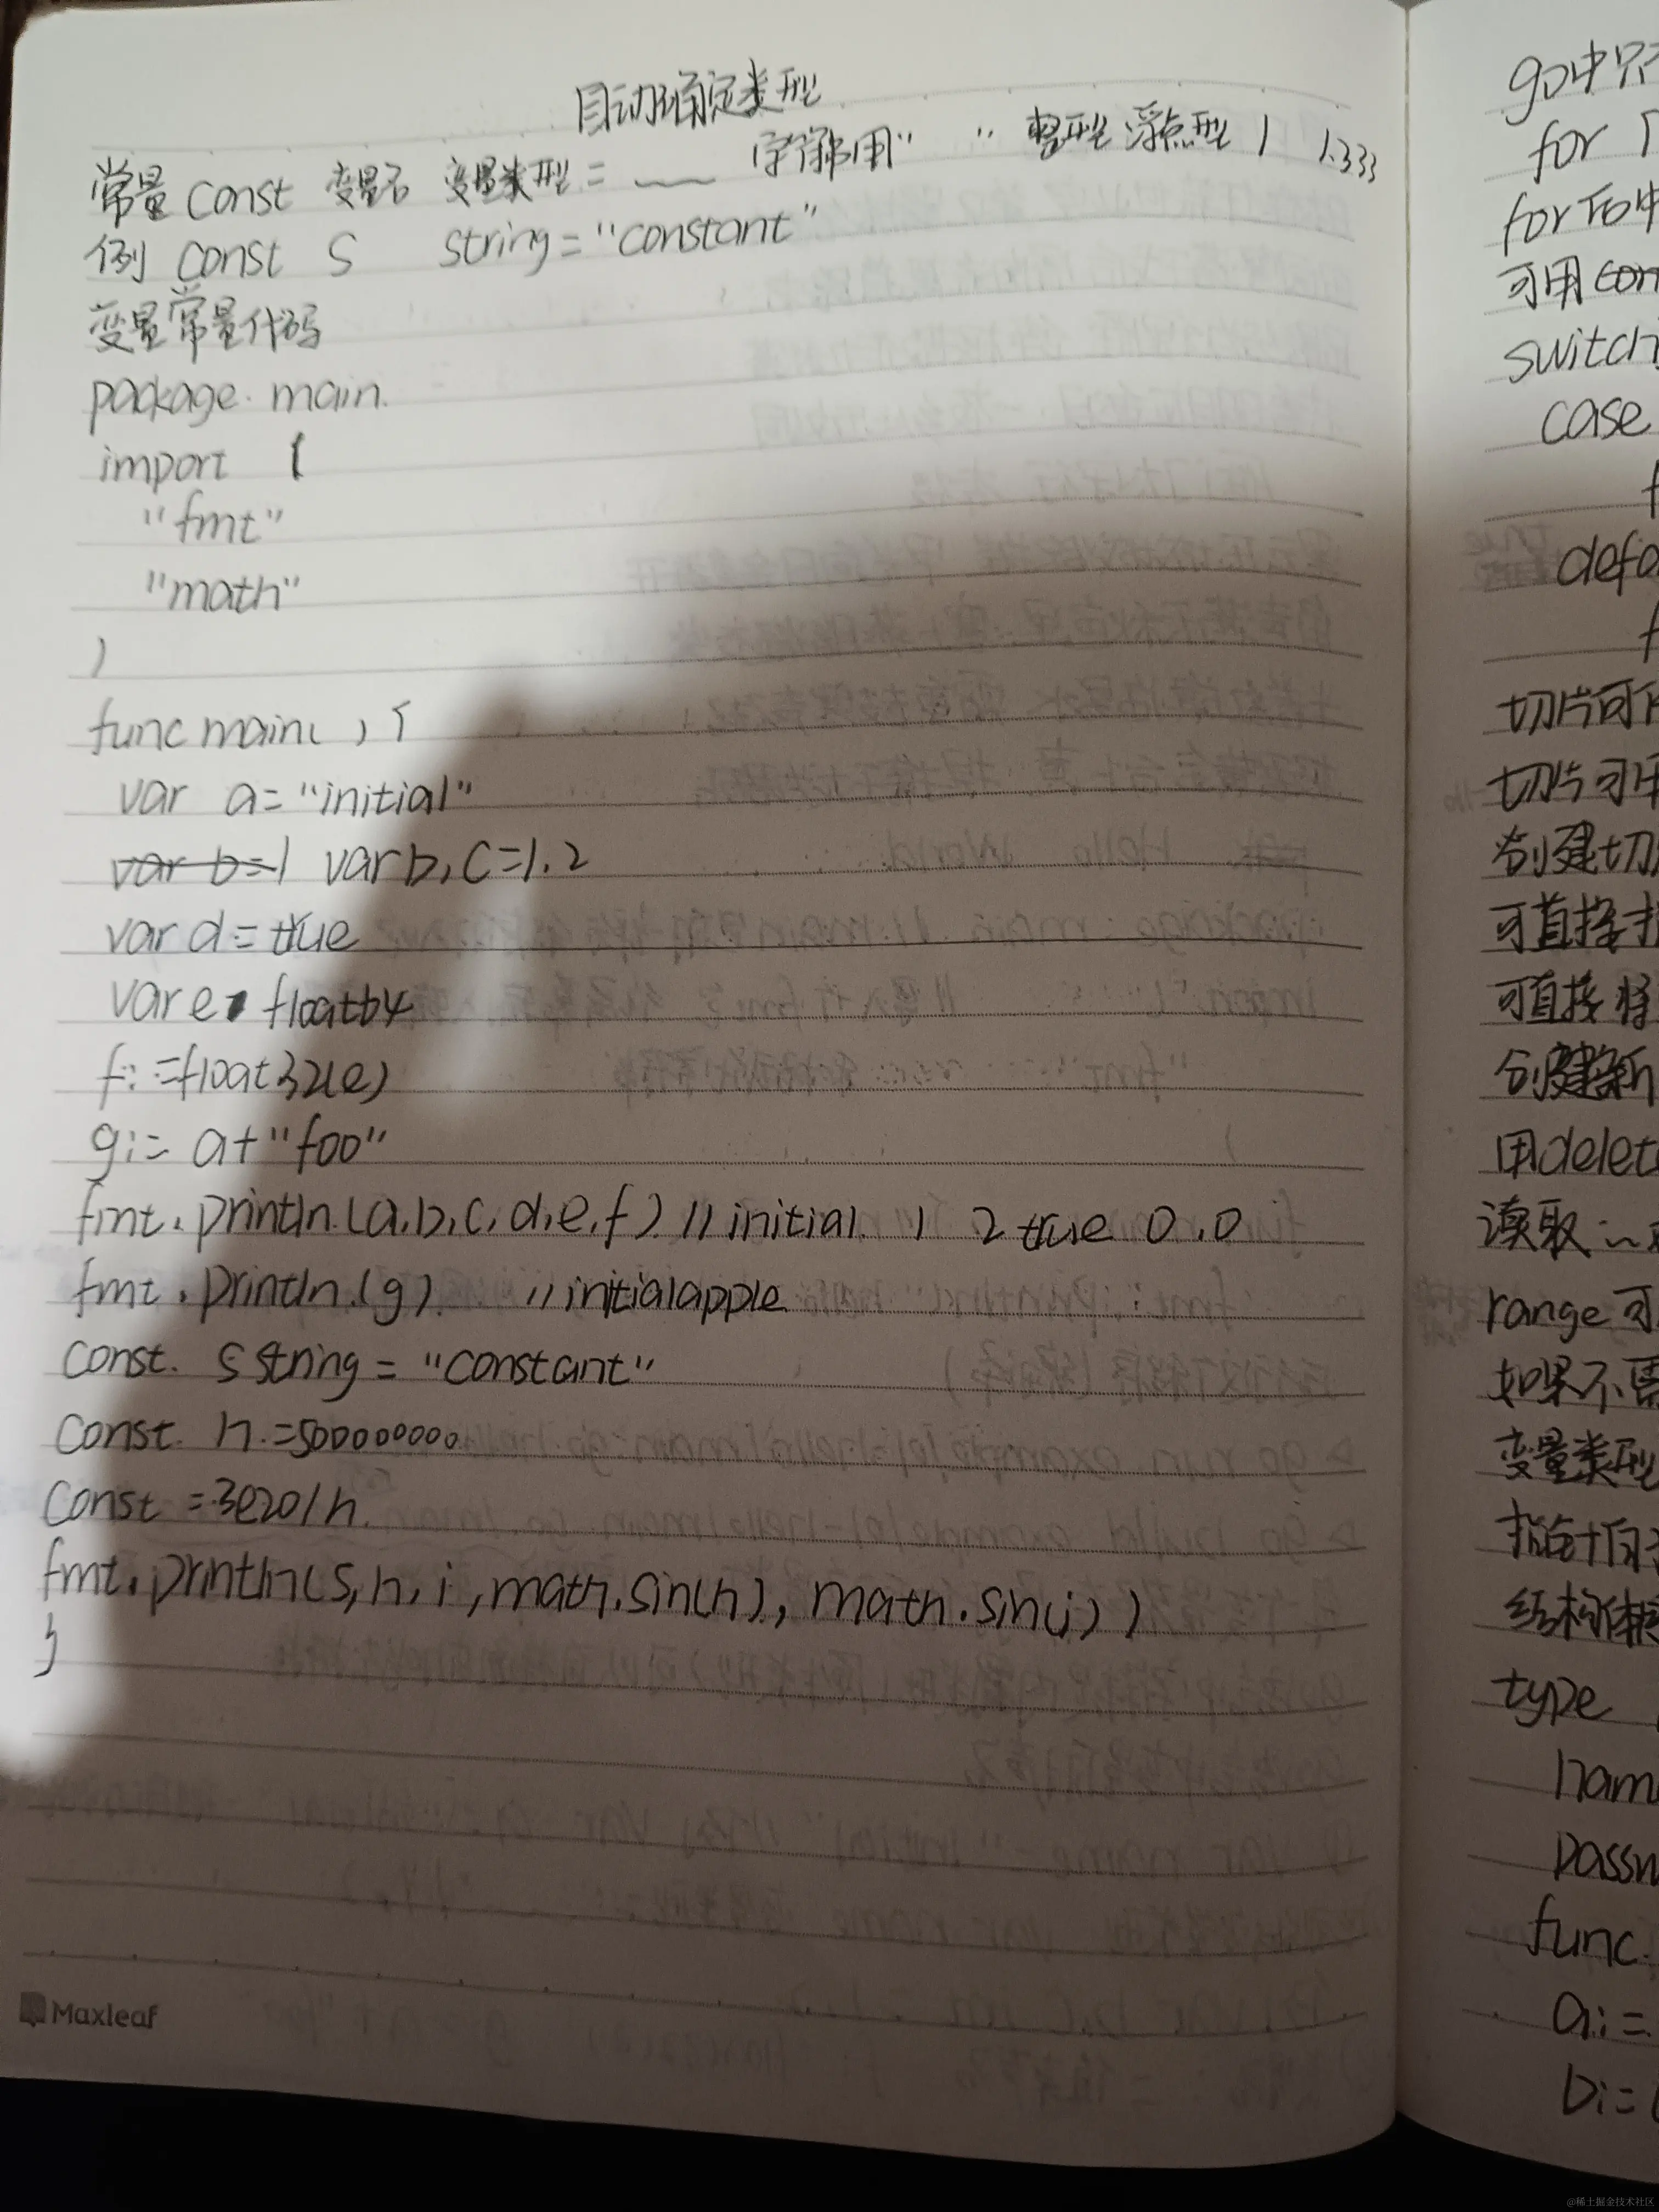 自动确定类型
常量 const 变量名 变量类型 = __ 字符串用" " 整型 浮点型 1 1.333
例 const s string = "constant"
变量常量代码
package main
import (
"fmt"
"math"
)
func main() {
var a = "initial"
var b=1 var b,c=1.2
var d = true
var e float64
f:=float32(e)
g:= a+"foo"
fmt.println(a,b,c,d,e,f) //initial 1 2 true 0.0
fmt.println(g) //initialapple
const s string = "constant"
const h =500000000
const =3e20/h
fmt.println(s,h,i,math.sin(h), math.sin(i))
}
Maxleaf
go中只
for
for
可用
switch
case
切片可
切片可用
创建切
可直接
可直接将
创建新
用delet
读取
range可
如果不需
变量类型
指针
结构体
type
func
a:=
b:=
@稀土掘金技术社区